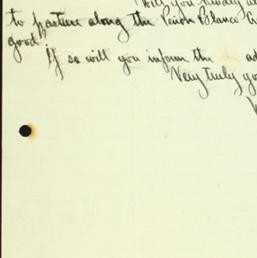 you kindly
to pasture along the Penon Blanco
good"
If so will you inform the ad
Very truly yo